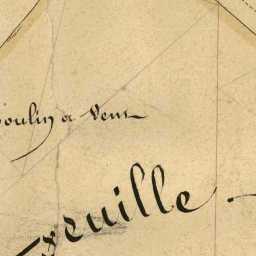 oulin a Vent
euille